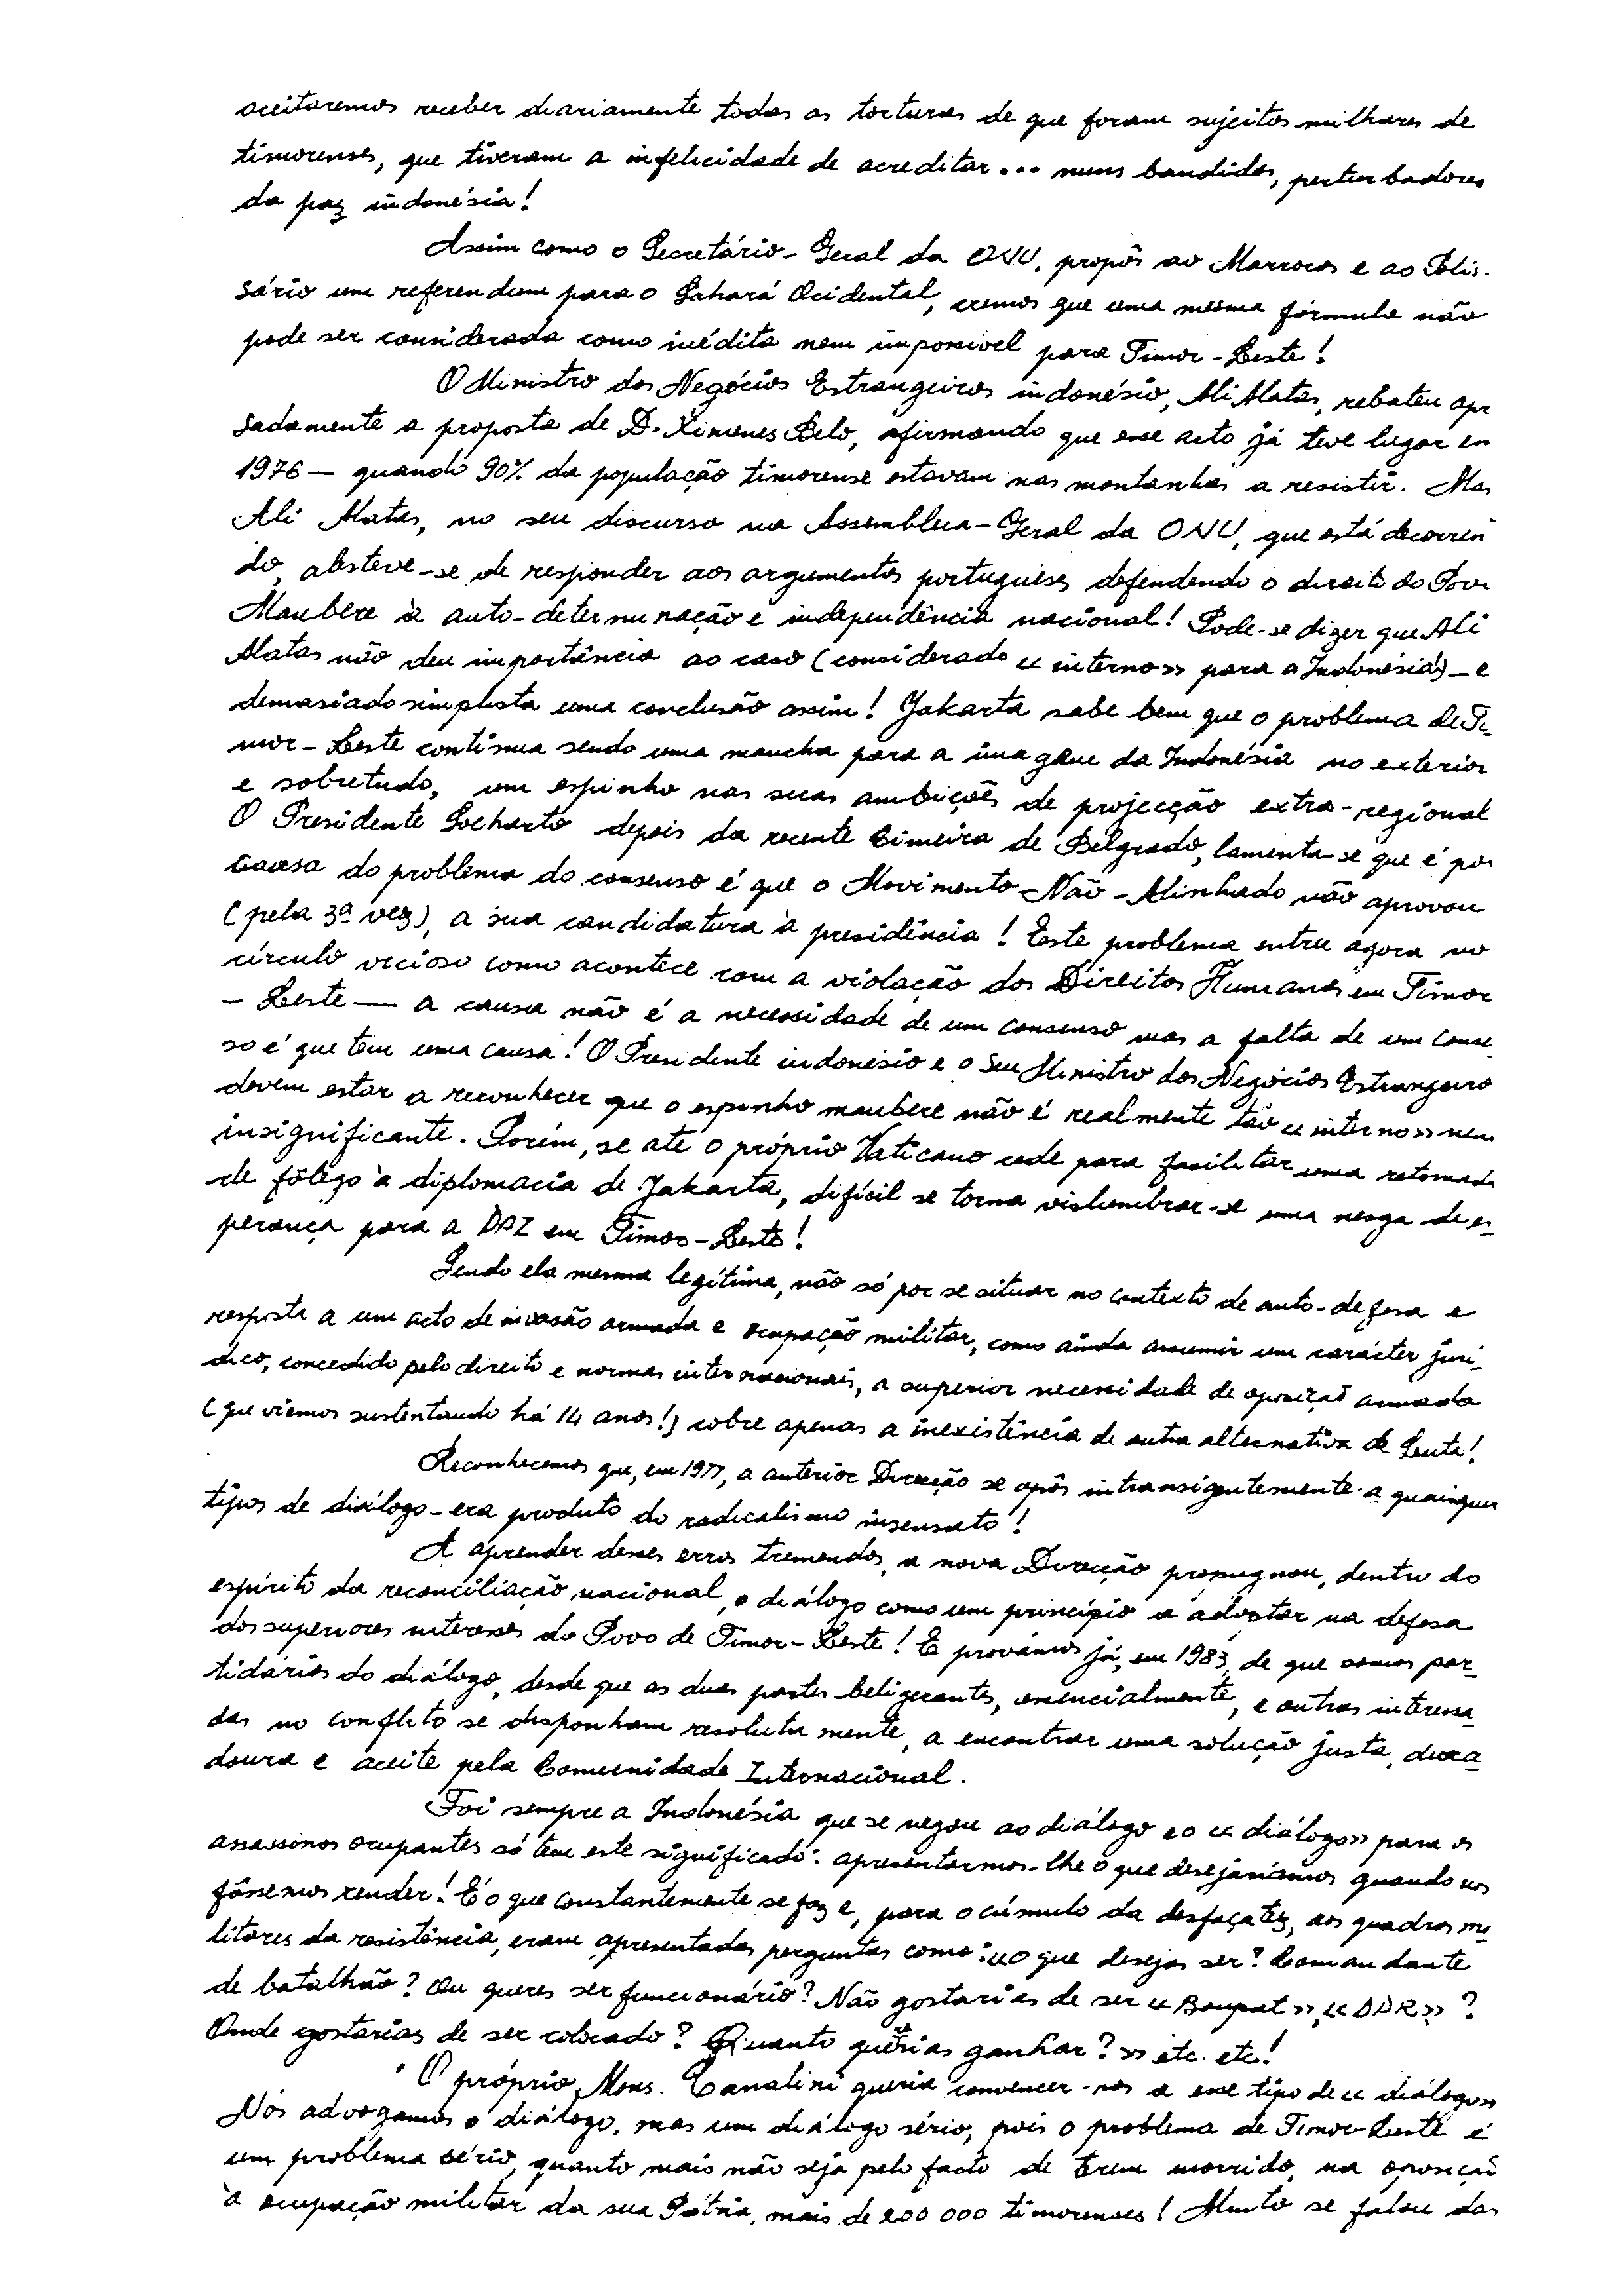 aceitaremos receber diariamente todas as torturas de que foram sujeitos milhares de
timorenses, que tiveram a infelicidade de acreditar... nuns bandidos, perturbadores
da paz indonésia!
Assim como o Secretário-Geral da ONU, propôs ao Marrocos e ao Polis-
sário um referendum para o Sahará Ocidental, cremos que uma mesma fórmula não
pode ser considerada como inédita nem impossível para Timor-Leste!
O Ministro dos Negócios Estrangeiros indonésio, Ali Alatas, rebateu apr
sadamente a proposta de D. Ximenes Belo, afirmando que esse acto já teve lugar en
1976 — quando 90% da população timorense estavam nas montanhas a resistir. Mas
Ali Alatas, no seu discurso na Assembleia-Geral da ONU, que está decorren
do, absteve-se de responder aos argumentos portugueses defendendo o direito do Povo
Maubere à auto-determinação e independência nacional! Pode-se dizer que Ali
Alatas não deu importância ao caso (considerado «interno» para a Indonésia) - e
demasiado simplista uma conclusão assim! Jakarta sabe bem que o problema de Ti-
mor-Leste continua sendo uma mancha para a imagem da Indonésia no exterior
e sobretudo, um espinho nas suas ambições de projecção extra-regional
O Presidente Soeharto depois da recente Cimeira de Belgrado, lamenta-se que é por
causa do problema do consenso é que o Movimento Não-Alinhado não aprovou
(pela 3ª vez), a sua candidatura à presidência! Este problema entra agora no
círculo vicioso como acontece com a violação dos Direitos Humanos em Timor
-Leste — a causa não é a necessidade de um consenso mas a falta de um conse
so é que tem uma causa! O Presidente indonésio e o seu Ministro dos Negócios Estrangeiro
devem estar a reconhecer que o espinho maubere não é realmente tão «interno» nem
insignificante. Porém, se até o próprio Vaticano cede para facilitar uma retomada
de fôlego à diplomacia de Jakarta, difícil se torna vislumbrar-se uma nesga de es-
perança para a PAZ em Timor-Leste!
Sendo ela mesma legítima, não só por se situar no contexto de auto-defesa e
resposta a um acto de invasão armada e ocupação militar, como ainda assumir um carácter jurí-
dico, concedido pelo direito e normas internacionais, a superior necessidade de oposição armada
(que viemos sustentando há 14 anos!) cobre apenas a inexistência de outra alternativa de Luta!
Reconhecemos que, em 1977, a anterior Direcção se opôs intransigentemente a quaisquer
tipos de diálogo - era produto do radicalismo insensato!
A aprender desses erros tremendos, a nova Direcção propugnou, dentro do
espírito da reconciliação nacional, o diálogo como um princípio a adoptar na defesa
dos superiores interesses do Povo de Timor-Leste! E provámos já, em 1983, de que somos par-
tidários do diálogo, desde que as duas partes beligerantes, essencialmente, e outras interessa-
das no conflito se disponham resolutamente, a encontrar uma solução justa, dura-
doura e aceite pela Comunidade Internacional.
Foi sempre a Indonésia que se negou ao diálogo e o «diálogo» para os
assassinos ocupantes só tem este significado: apresentarmos-lhe o que desejaríamos quando nos
fôssemos render! É o que constantemente se faz e, para o cúmulo da desfaçatez, aos quadros mi-
litares da resistência, eram apresentadas perguntas como: «o que desejas ser? Comandante
de batalhão? Ou queres ser funcionário? Não gostarias de ser «Boupat», «DPR»?
Onde gostarias de ser colocado? Quanto querias ganhar?» etc. etc!
O próprio Mons. Canalini queria convencer-nos a esse tipo de «diálogo»
Nós advogamos o diálogo, mas um diálogo sério, pois o problema de Timor-Leste é
um problema sério, quanto mais não seja pelo facto de terem morrido, na oposiçã
à ocupação militar da sua Pátria, mais de 200 000 timorenses! Muito se falou das